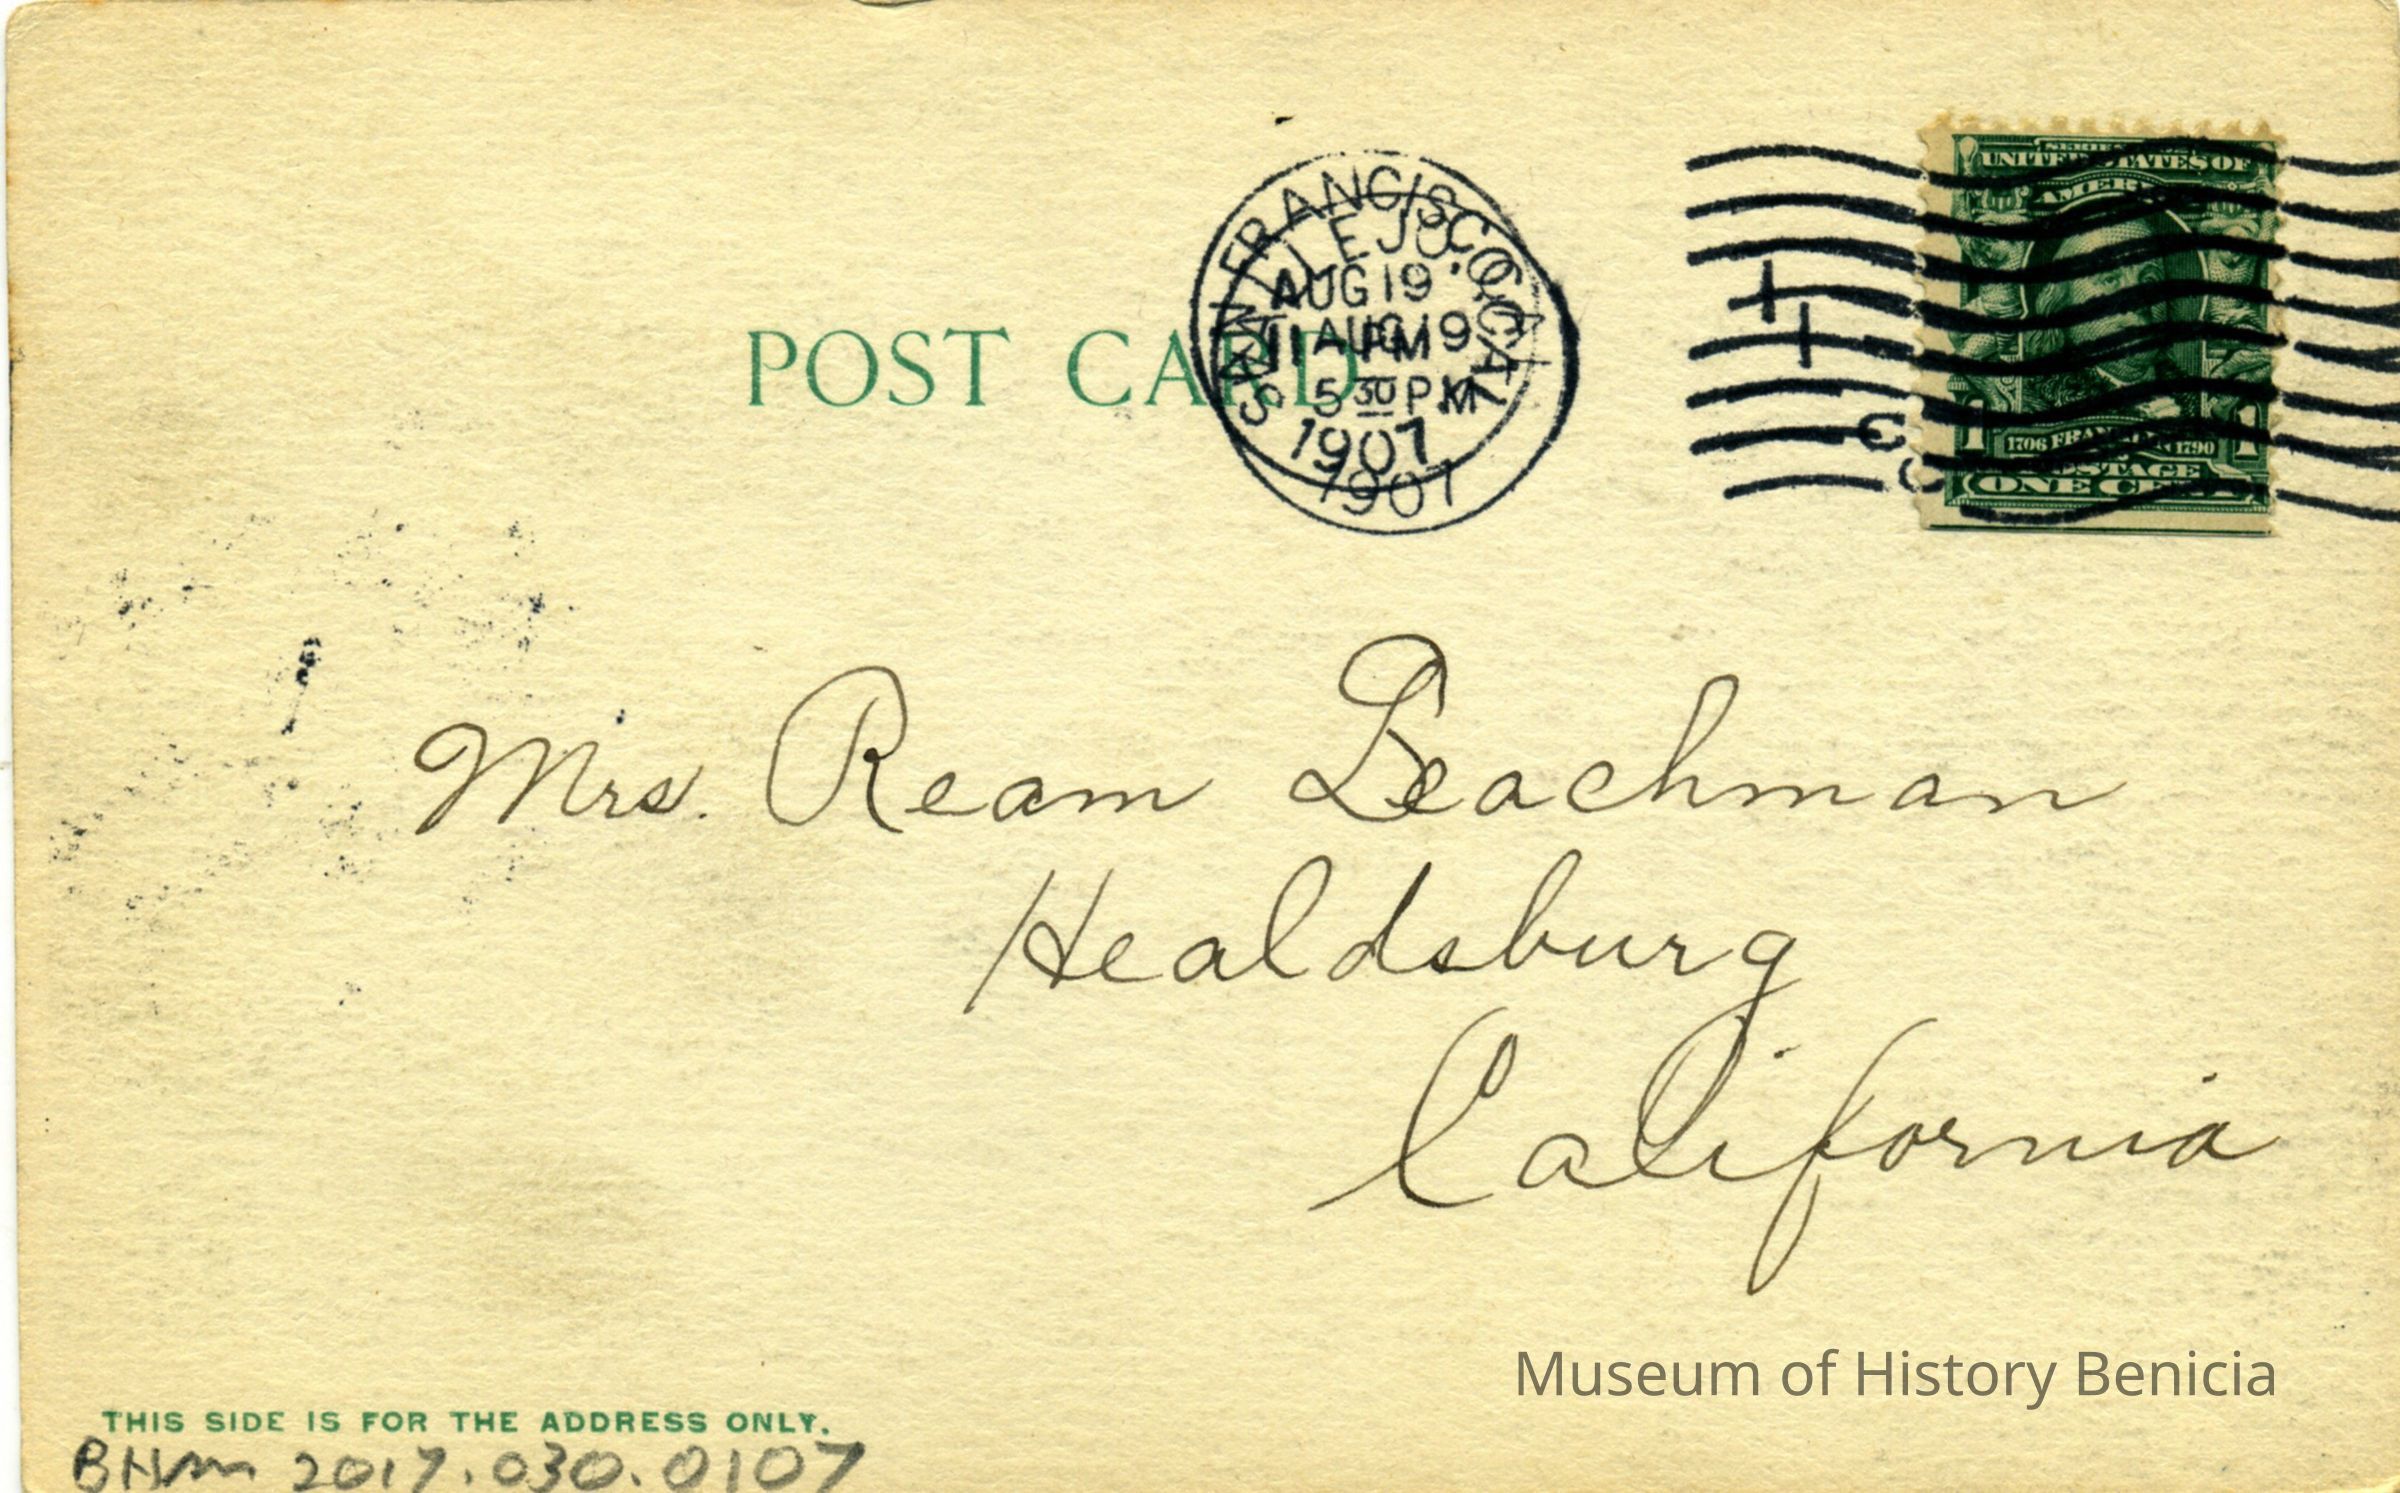 POST CARD
SAN FRANCISCO, CAL.
AUG 19
11 PM
1907
AUG 19
5 30 PM
1907
SERIES
UNITED STATES OF
AMERICA
1 1706 FRANKLIN 1790 1
POSTAGE
ONE CENT
Mrs. Ream Leachman
Healdsburg
California
Museum of History Benicia
THIS SIDE IS FOR THE ADDRESS ONLY.
BHM 2017.030.0107